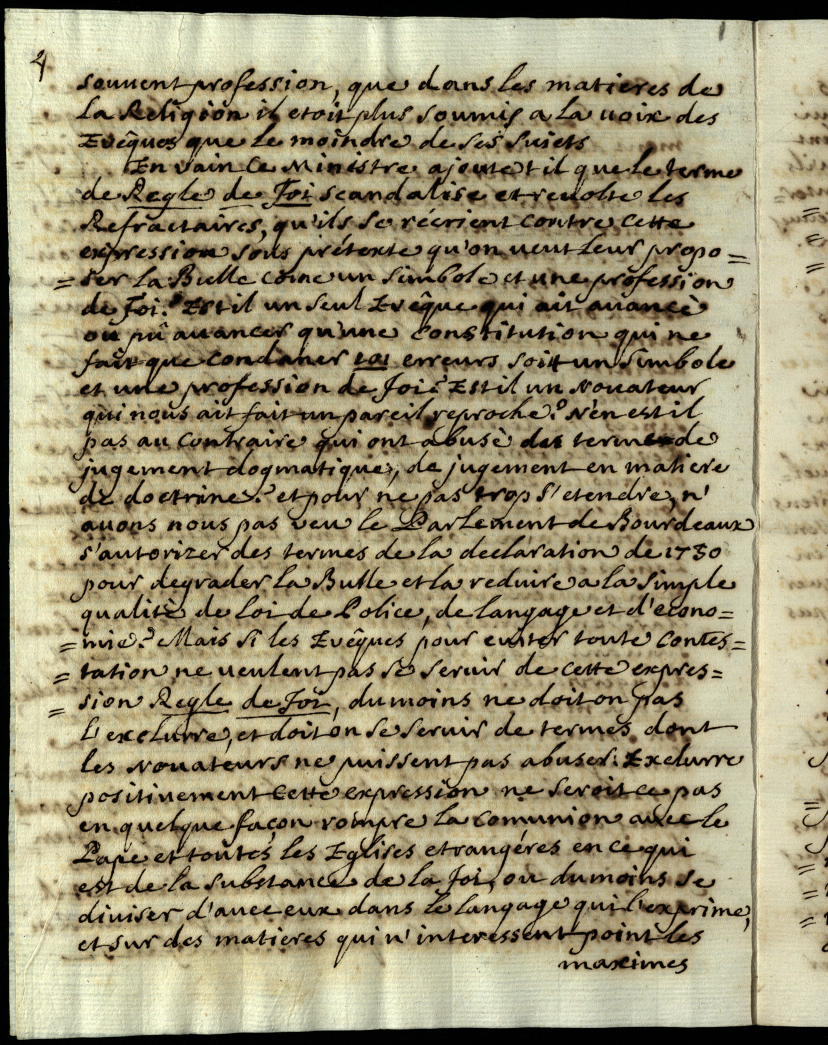 4
souvent profession, que dans les matieres de
la Religion il etoit plus soumis a la voix des
Evêques que le moindre de ses sujets
En vain ce Ministre ajoute t il que le terme
de Regle de Foi scandalise et revolte les
Refractaires, qu'ils se récrient contre cette
expression sous prétexte qu'on veut leur propo=
=ser la Bulle come un simbole et une profession
de foi. Est il un seul Evêque qui ait avancè
ou pû avancer qu'une constitution qui ne
fait que condaner 101 erreurs soit un simbole
et une profession de Foi? Est il un Novateur
qui nous ait fait un pareil reproche? N'en est il
pas au contraire qui ont abusè des termes de
jugement dogmatique, de jugement en matiere
de doctrine? et pour ne pas trop s'etendre, n'
avons nous pas veu le Parlement de Bourdeaux
s'autorizer des termes de la declaration de 1730
pour degrader la Bulle et la reduire a la simple
qualitè de loi de Police, de langage et d'econo=
=mie? Mais si les Evêques pour eviter toute contes=
=tation ne veulent pas se servir de cette expres=
=sion Regle de Foi, du moins ne doit on pas
l'exclurre, et doit on se servir de termes dont
les Novateurs ne puissent pas abuser. Exclurre
positivement cette expression ne seroit ce pas
en quelque façon rompre la comunion avec le
Pape et toutes les Eglises etrangéres en ce qui
est de la substance de la foi, ou du moins se
diviser d'avec eux dans le langage qui l'exprime,
et sur des matieres qui n'interessent point les
maximes